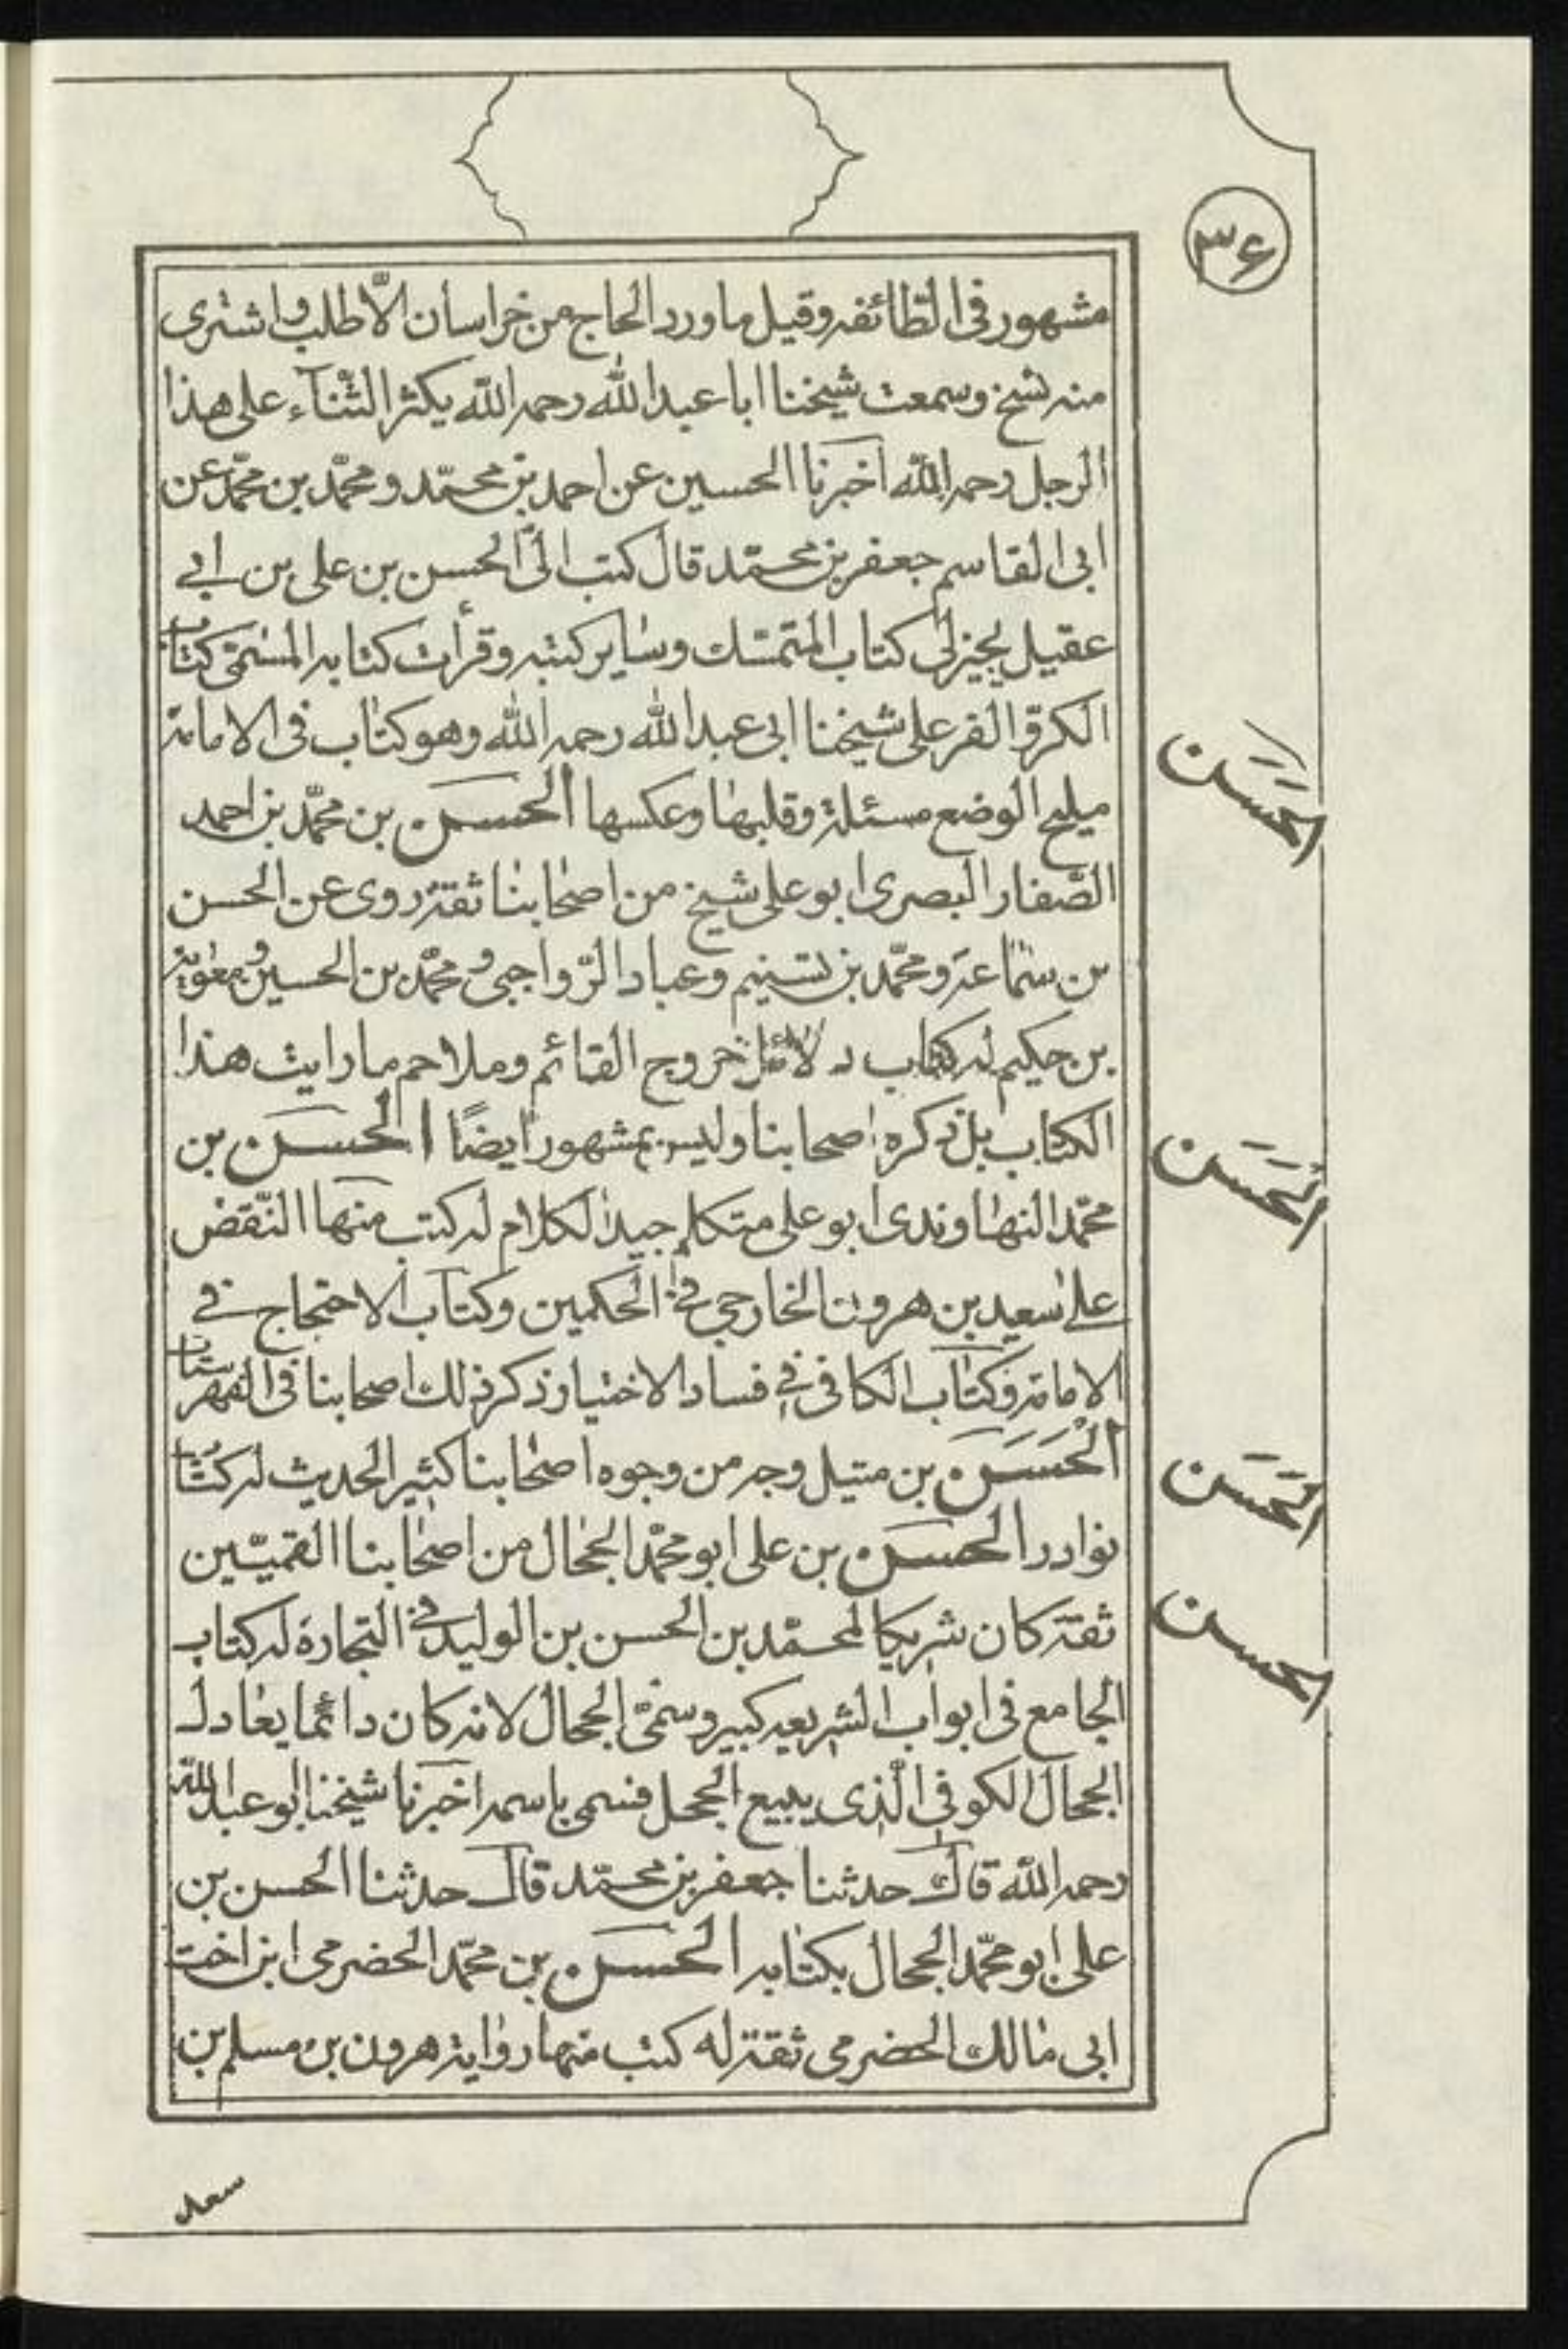 ٣۶
مشهور فى الطّائفه وقيل ما ورد الحاج من خراسان الّا طلب واشترى
منه نسخ وسمعت شيخنا ابا عبد الله رحمه الله يكثر الثّناء على هذا
الرجل رحمه الله اخبرنا الحسين عن احمد بن محمّد ومحمّد بن محمّد عن
ابى القاسم جعفر بن محمّد قال كتب الىّ الحسن بن على بن ابى
عقيل يجيز لى كتاب المتمسّك وساير كتبه وقرأت كتابه المسمّى كتاب
الكرّ والفر على شيخنا ابى عبد الله رحمه الله وهو كتاب فى الامامة
مليح الوضع مسئلة وقلبها وعكسها الحسن بن محمّد بن احمد
الصّفار البصرى ابو على شيخ من اصحابنا ثقة روى عن الحسن
بن سماعة ومحمّد بن تسنيم وعباد الرّواجنى ومحمّد بن الحسين ومعوية
بن حكيم له كتاب دلائل خروج القائم وملاحم ما رايت هذا
الكتاب بل ذكره اصحابنا وليس بمشهور ايضًا الحسن بن
محمّد النهاوندى ابو على متكلم جيد الكلام له كتب منها النّقض
على سعيد بن هرون الخارجى فى الحكمين وكتاب الاحتجاج فى
الامامة وكتاب الكافى فى فساد الاختيار ذكر ذلك اصحابنا فى الفهرستات
الْحَسَن بن متيل وجه من وجوه اصحابنا كثير الحديث له كتاب
نوادر الحسن بن على ابو محمّد الحجال من اصحابنا القميّين
ثقة كان شريكا لمحمّد بن الحسن بن الوليد فى التجارة له كتاب
الجامع فى ابواب الشريعه كبير وسمّى الحجال لانه كان دائما يعادل
الحجال الكوفى الّذى يبيع الحجل فسمى باسمه اخبرنا شيخنا ابو عبد الله
رحمه الله قال حدثنا جعفر بن محمّد قال حدثنا الحسن بن
على ابو محمّد الحجال بكتابه الحسن بن محمّد الحضرمى ابن اخت
ابى مالك الحضرمى ثقة له كتب منها رواية هرون بن مسلم بن
الحَسَن
الْحَسَن
الحَسَن
الحسن
سعد